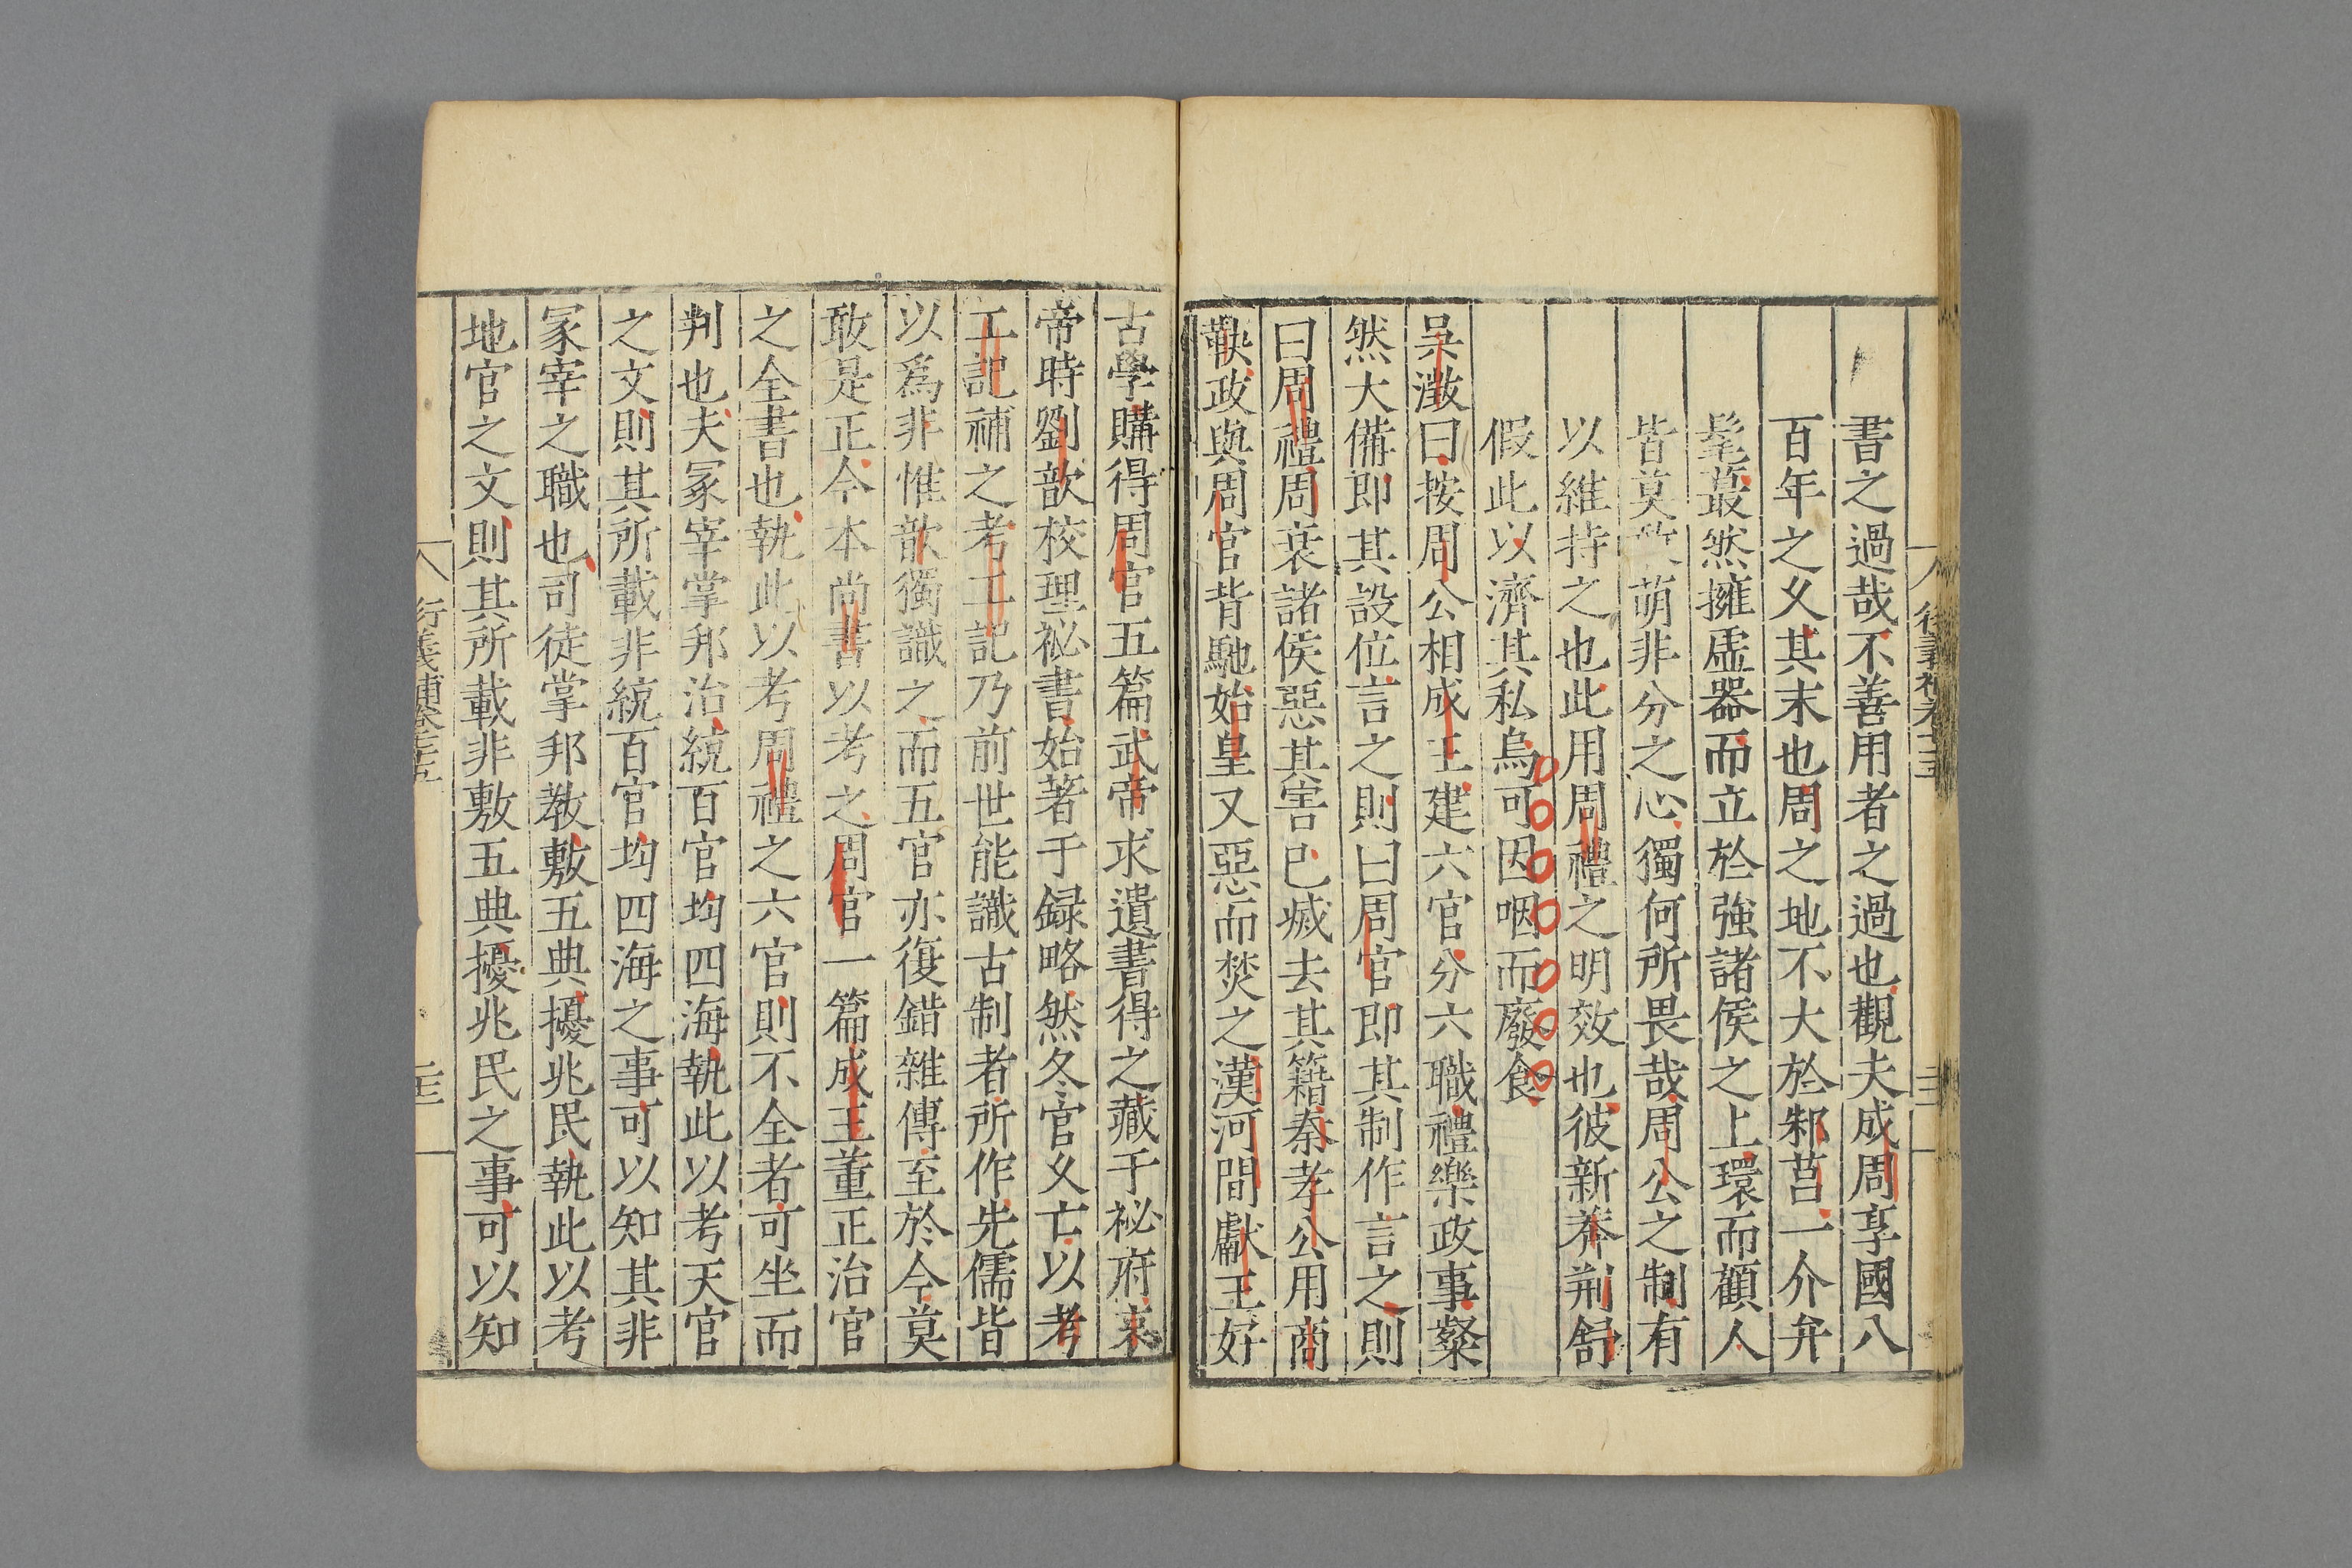 書之過哉不善用者之過也觀夫成周享國八
百年之久其末也周之地不大於邾莒一介弁
髦蕞然擁虛器而立於強諸侯之上環而顧人
皆莫敢萌非分之心獨何所畏哉周公之制有
以維持之也此用周禮之明效也彼新莽荊舒
假此以濟其私烏可因咽而廢食
吳澂曰按周公相成王建六官分六職禮樂政事粲
然大備即其設位言之則曰周官即其制作言之則
曰周禮周衰諸侯惡其害已滅去其籍秦孝公用商
鞅政與周官背馳始皇又惡而焚之漢河間獻王好
古學購得周官五篇武帝求遺書得之藏于祕府哀
帝時劉歆校理祕書始著于録略然冬官久亡以考
工記補之考工記乃前世能識古制者所作先儒皆
以爲非惟歆獨識之而五官亦復錯雜傳至於今莫
敢是正今本尚書以考之周官一篇成王董正治官
之全書也執此以考周禮之六官則不全者可坐而
判也夫冡宰掌邦治統百官均四海執此以考天官
之文則其所載非統百官均四海之事可以知其非
冡宰之職也司徒掌邦教敷五典擾兆民執此以考
地官之文則其所載非敷五典擾兆民之事可以知
衍義補卷七十五